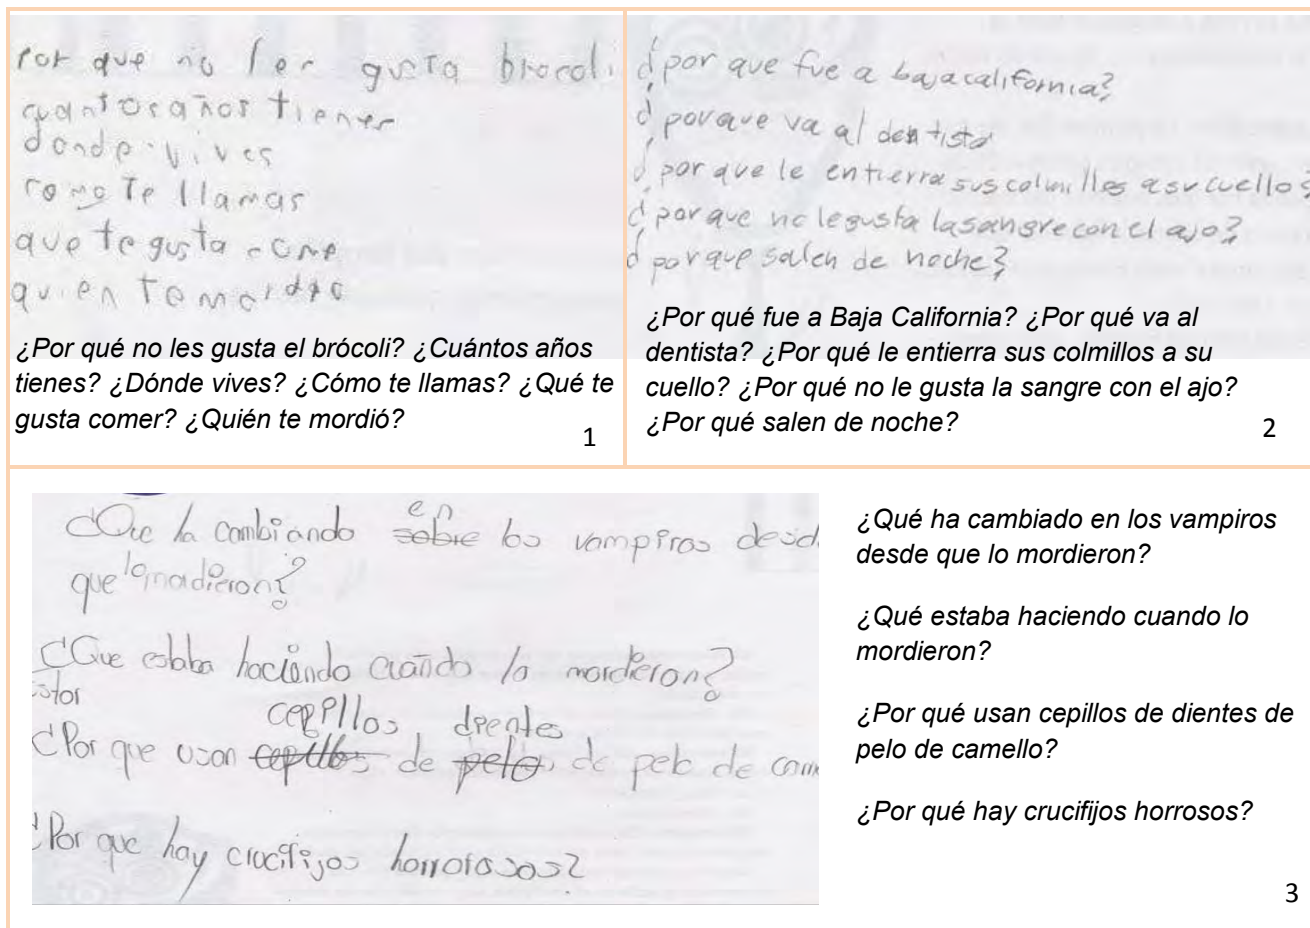 Por que no les gusta brocoli
cuantos años tienes
donde vives
como te llamas
que te gusta come
quien te mordio
¿Por qué no les gusta el brócoli? ¿Cuántos años
tienes? ¿Dónde vives? ¿Cómo te llamas? ¿Qué te
gusta comer? ¿Quién te mordió?
1
¿por que fue a bajacalifornia?
¿porque va al dentista
¿por que le entierra sus colmillos a su cuello?
¿por que no le gusta la sangre con el ajo?
¿por que salen de noche?
¿Por qué fue a Baja California? ¿Por qué va al
dentista? ¿Por qué le entierra sus colmillos a su
cuello? ¿Por qué no le gusta la sangre con el ajo?
¿Por qué salen de noche?
2
¿Que ha cambiando sobre en los vampiros desd
que lo madieron?
¿Que estaba haciendo cuando lo mordieron?
cepillos dientes
¿Por que usan cepillos de pelo de pelo de came
¿Por que hay crucifijos horrorosos?
¿Qué ha cambiado en los vampiros
desde que lo mordieron?
¿Qué estaba haciendo cuando lo
mordieron?
¿Por qué usan cepillos de dientes de
pelo de camello?
¿Por qué hay crucifijos horrosos?
3